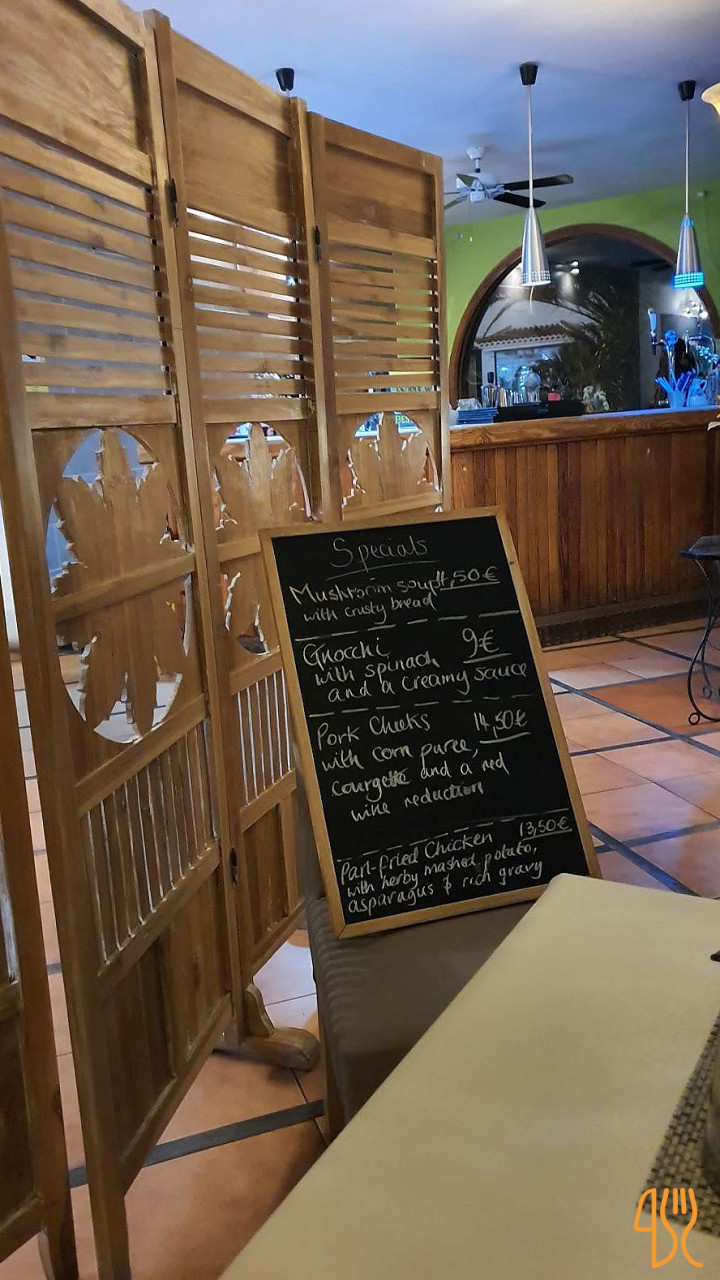 Specials
Mushroom soup 4,50€
with crusty bread
Gnocchi 9€
with spinach
and a creamy sauce
Pork Cheeks 14,50€
with corn puree,
courgette and a red
wine reduction
Pan-fried Chicken 13,50€
with herby mashed potato,
asparagus & rich gravy